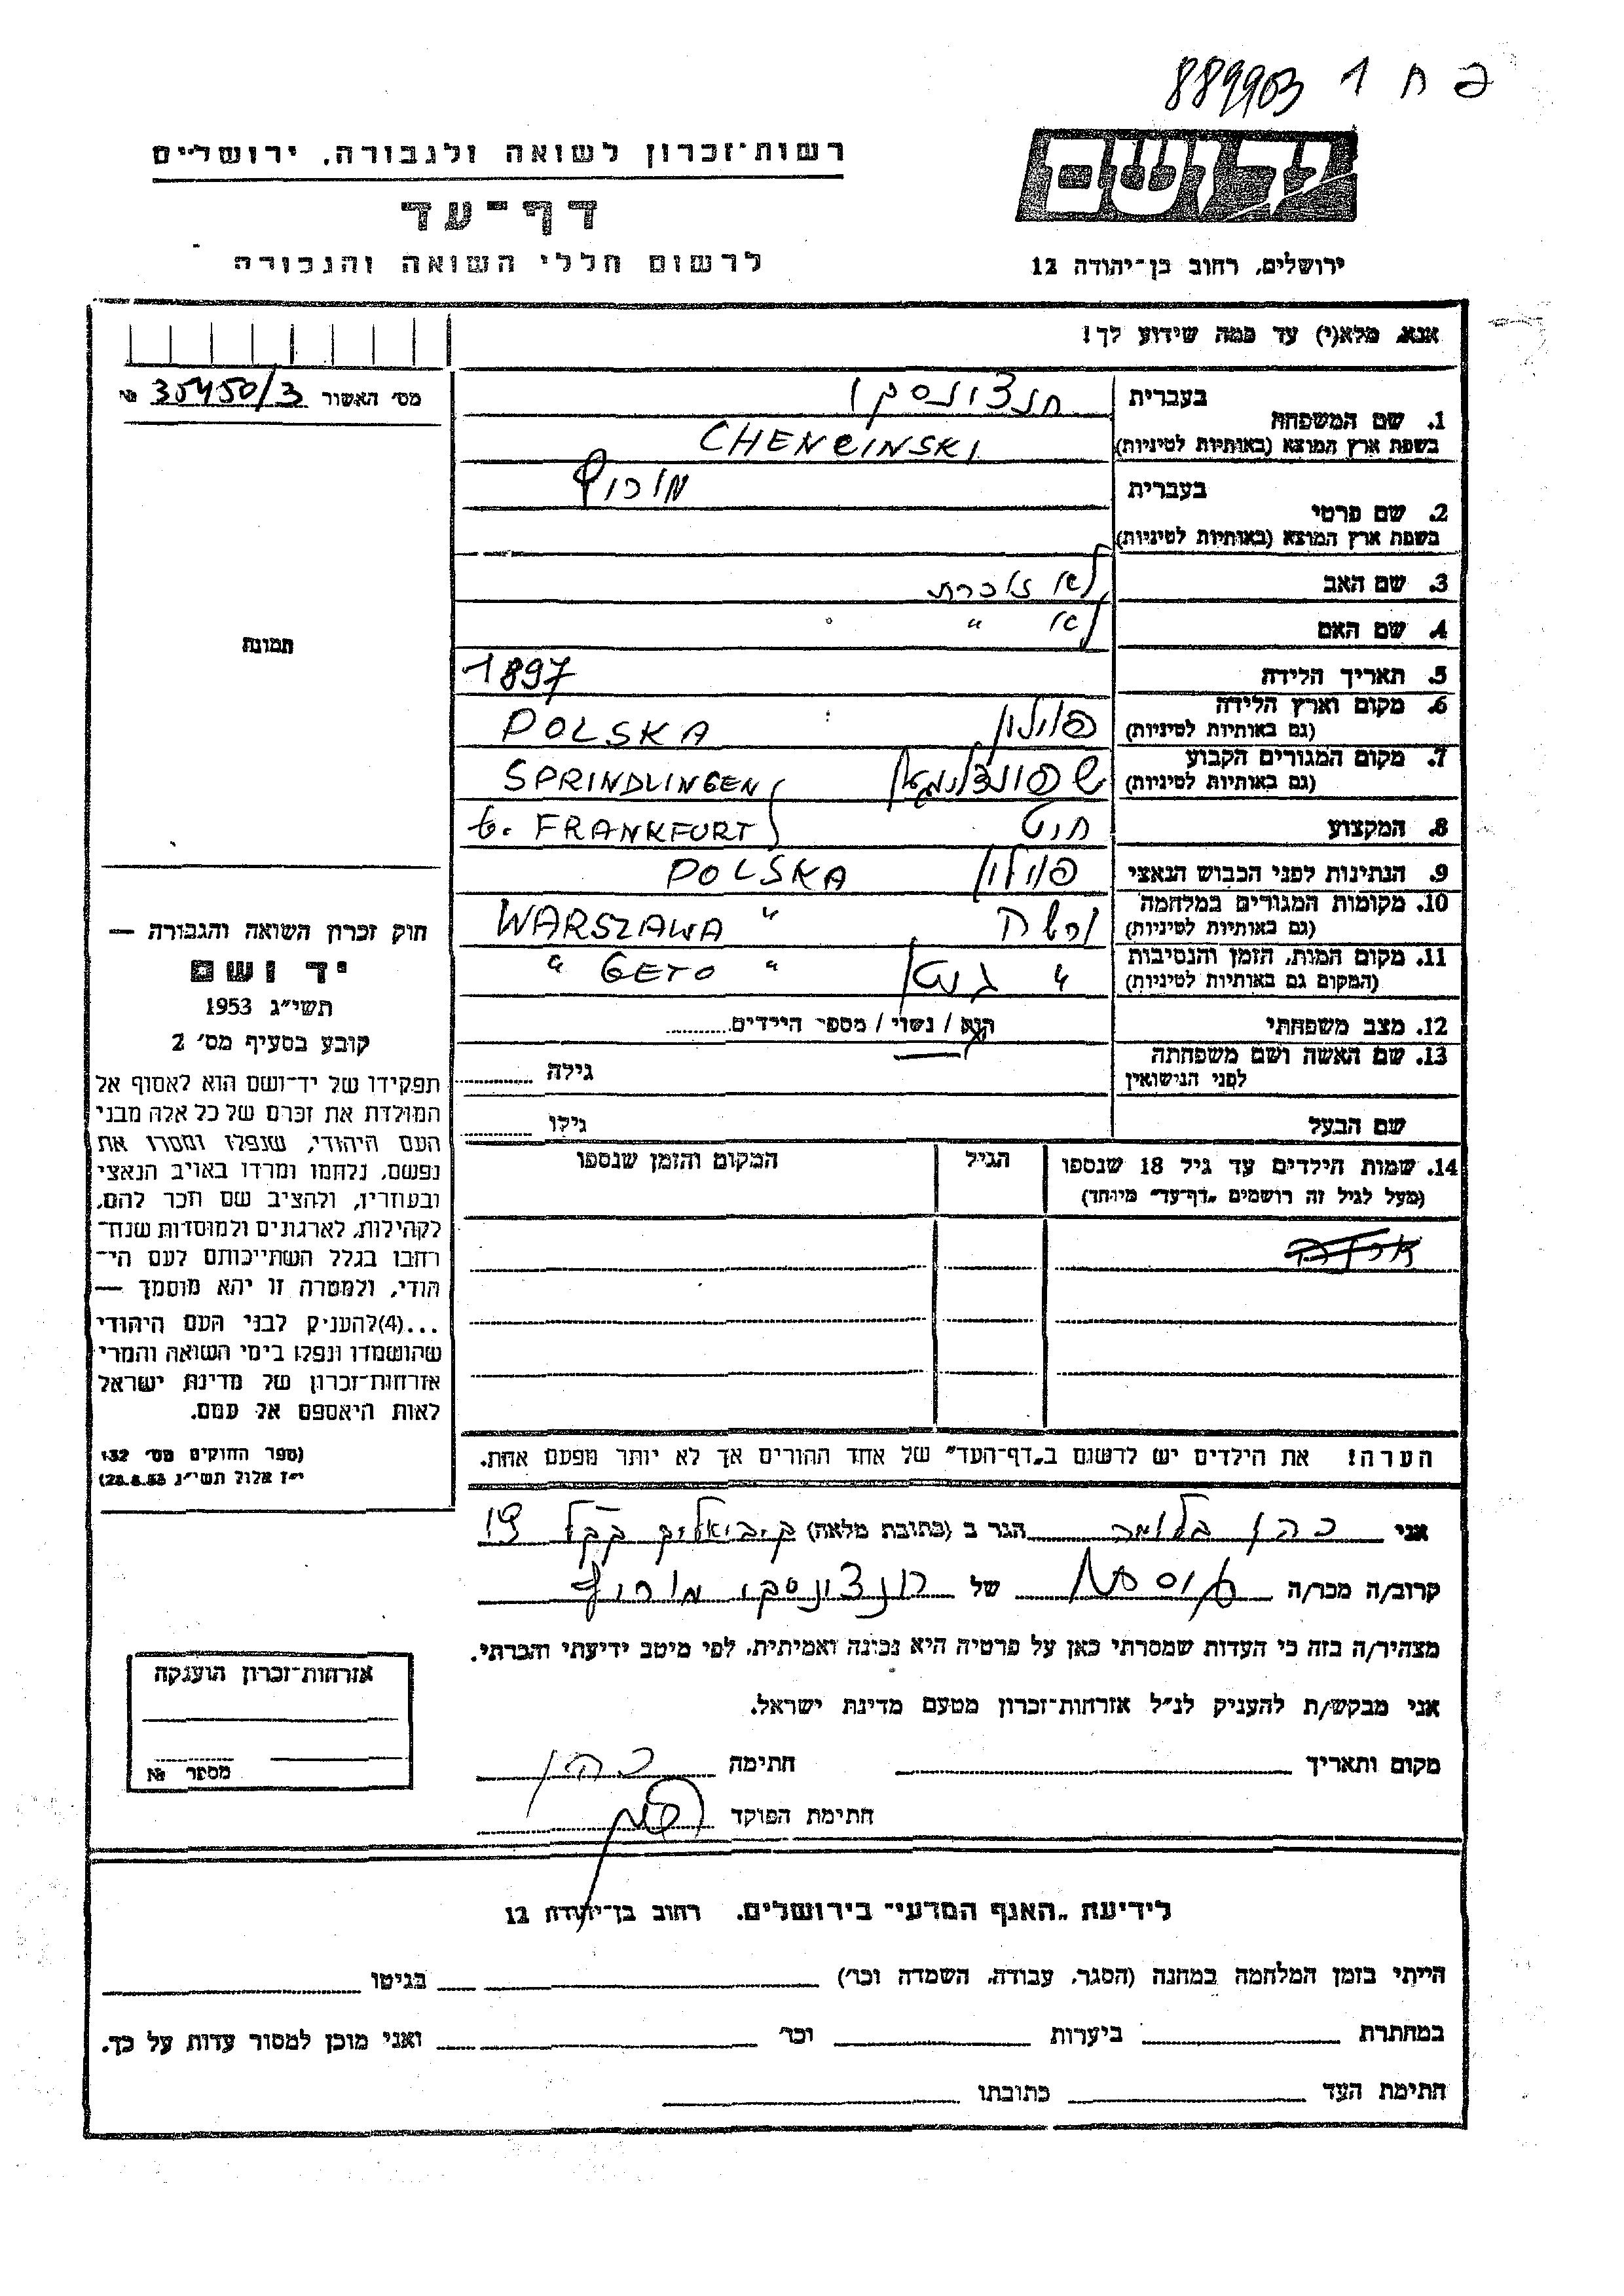 889903 1 ח פ
יד ושם
רשות־זכרון לשואה ולגבורה, ירושלים
דף־עד
לרשום חללי השואה והגבורה
ירושלים, רחוב בן־יהודה 12
אנא, מלא(י) עד כמה שידוע לך!
מס׳ האשור 35450/3 №
תמונה
1. שם המשפחה
בעברית חנצ׳ינסקי
בשפת ארץ המוצא (באותיות לטיניות) CHENCINSKI
2. שם פרטי
בעברית
בשפת ארץ המוצא (באותיות לטיניות)
3. שם האב לא זוכרת
4. שם האם לא "
5. תאריך הלידה 1897
6. מקום וארץ הלידה (גם באותיות לטיניות) פולין POLSKA
7. מקום המגורים הקבוע (גם באותיות לטיניות) SPRINDLINGEN
b. FRANKFURT
8. המקצוע חיט
9. הנתינות לפני הכבוש הנאצי פולין POLSKA
10. מקומות המגורים במלחמה (גם באותיות לטיניות) ורשה " WARSZAWA
11. מקום המות, הזמן והנסיבות (המקום גם באותיות לטיניות) " גיטו " GETO "
12. מצב משפחתי רווק / נשוי / מספר הילדים
13. שם האשה ושם משפחתה לפני הנישואין גילה
שם הבעל גילו
14. שמות הילדים עד גיל 18 שנספו
(מעל לגיל זה רושמים „דף־עד” מיוחד)
הגיל
המקום והזמן שנספו
הערה! את הילדים יש לרשום ב„דף־העד” של אחד ההורים אך לא יותר מפעם אחת.
חוק זכרון השואה והגבורה —
יד ושם
תשי״ג 1953
קובע בסעיף מס׳ 2
תפקידו של יד־ושם הוא לאסוף אל
המולדת את זכרם של כל אלה מבני
העם היהודי, שנפלו ומסרו את
נפשם, נלחמו ומרדו באויב הנאצי
ובעוזריו, ולהציב שם וזכר להם,
לקהילות, לארגונים ולמוסדות שנח־
רבו בגלל השתייכותם לעם הי־
הודי, ולמטרה זו יהא מוסמך —
...(4)להעניק לבני העם היהודי
שהושמדו ונפלו בימי השואה והמרי
אזרחות־זכרון של מדינת ישראל
לאות היאספם אל עמם.
(ספר החוקים מס׳ 132
י״ז אלול תשי״ג 28.8.53)
אני כהן בלומה הגר ב (כתובת מלאה)
קרוב/ה מכר/ה של
מצהיר/ה בזה כי העדות שמסרתי כאן על פרטיה היא נכונה ואמיתית, לפי מיטב ידיעתי והכרתי.
אני מבקש/ת להעניק לנ״ל אזרחות־זכרון מטעם מדינת ישראל.
מקום ותאריך חתימה כהן
חתימת הפוקד
אזרחות־זכרון הוענקה
מספר №
לידיעת „האגף המדעי” בירושלים, רחוב בן־יהודה 12
הייתי בזמן המלחמה במחנה (הסגר, עבודה, השמדה וכו׳) בגיטו
במחתרת ביערות וכו׳ ואני מוכן למסור עדות על כך.
חתימת העד כתובתו